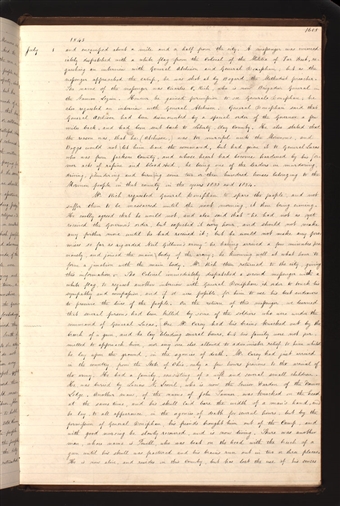 1843
July 1 and encamped about a mile and a half from the city. A messenger was immed-
iately dispatched with a white flag from the Colonel of the Militia of Far West, re-
questing an interview with General Atchison, and General Doniphan, but as the
messenger approached the camp, he was shot at by Bogard, the Methodist preacher.
The name of the messenger was Charles C. Rich, who is now Brigadier General in
the Nauvoo Legion. However, he gained permission to see General Doniphan; he
also requested an interview with General Atchison. General Doniphan said that
General Atchison had been dismounted by a special order of the Governor a few
miles back, and had been sent back to Liberty, Clay County. He also stated that
the reason was, that he (Atchison) was too merciful unto the Mormons, and
Boggs would not let him have the command, but had given it to General Lucas
who was from Jackson County, and whose heart had become hardened by his for-
mer acts of rapine and bloodshed, he being one of the leaders in murdering,
driving, plundering, and burning some two or three hundred houses belonging to the
Mormon people in that county in the years 1833 and 1834.
Mr. Rich requested General Doniphan to spare the people, and not
suffer them to be massacred until the next morning, it then being evening.
He coolly agreed that he would not, and also said that "he had not as yet
received the Governor's order, but expected it every hour, and should not make
any further move until he had received it; but he would not make any prom-
ises so far as regarded Neil Gillium's army" he having arrived a few minutes pre-
viously, and joined the main body of the army, he knowing well at what hour to
form a junction with the main body. Mr. Rich then returned to the city, giving
this information. The Colonel immediately dispatched a second messenger with a
white flag, to request another interview with General Doniphan in order to touch his
sympathy and compassion, and if it were possible, for him to use his best endeavors
to preserve the lives of the people. On the return of this messenger, we learned
that several persons had been killed by some of the soldiers who were under the
command of General Lucas. One Mr. Carey had his brains knocked out by the
breech of a gun, and he lay bleeding several hours, but his family were not per-
mitted to approach him, nor any one else allowed to administer relief to him whilst
he lay upon the ground in the agonies of death. Mr. Carey had just arrived
in the country from the State of Ohio, only a few hours previous to the arrival of
the army. He had a family consisting of a wife and several small children.
He was buried by Lucius N. Scovil, who is now the Senior Warden of the Nauvoo
Lodge. Another man, of the name of John Tanner, was knocked on the head
at the same time, and his skull laid bare the width of a man's hand, and
he lay, to all appearance, in the agonies of death for several hours; but by the
permission of General Doniphan, his friends brought him out of the camp, and
with good nursing he slowly recovered, and is now living. There was another
man, whose name is Powell, who was beat on the head with the breech of a
gun until his skull was fractured, and his brains run out in two or three places.
He is now alive, and resides in this County, but has lost the use of his senses